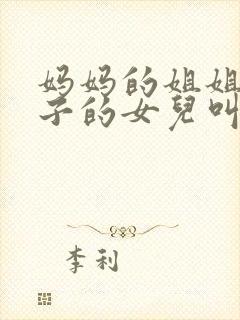 妈妈的姐姐
子的女兒叫
李利